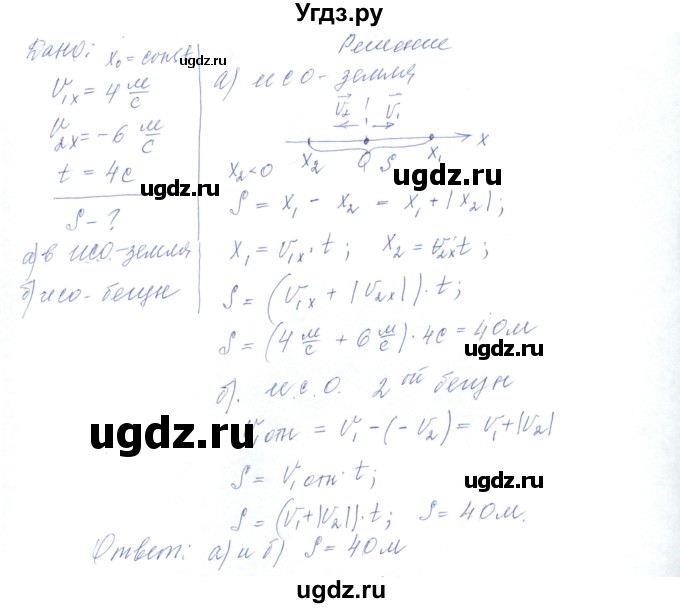 Угдз.ру
Дано: x₀ = const
V₁ₓ = 4 м/с
V₂ₓ = -6 м/с
t = 4с
S - ?
а) в ИСО-земля
б) исо-бегун
Решение
а) исо-земля
V₂ V₁
x₂ 0 S x₁ x
x₂<0
S = x₁ - x₂ = x₁ + |x₂|;
x₁ = V₁ₓ · t; x₂ = V₂ₓt;
S = (V₁ₓ + |V₂ₓ|) · t;
S = (4 м/с + 6 м/с) · 4с = 40м
б). и.с.о. 2ой бегун
V₁отн = V₁ - (-V₂) = V₁+|V₂|
S = V₁отн · t;
S = (V₁+|V₂|) · t; S = 40м.
Ответ: а) и б) S = 40м
ugdz.ru
ugdz.ru
ugdz.ru
ugdz.ru
ugdz.ru
ugdz.ru
ugdz.ru
ugdz.ru